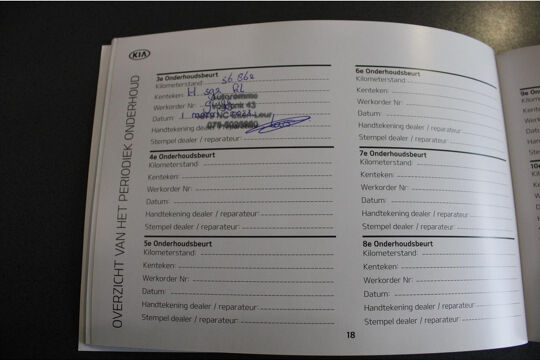 KIA
OVERZICHT VAN HET PERIODIEK ONDERHOUD
3e Onderhoudsbeurt
Kilometerstand: 56 862
Kenteken:
Werkorder Nr:
Datum:
Handtekening dealer / reparateur:
Stempel dealer / reparateur:
4e Onderhoudsbeurt
Kilometerstand:
Kenteken:
Werkorder Nr:
Datum:
Handtekening dealer / reparateur:
Stempel dealer / reparateur:
5e Onderhoudsbeurt
Kilometerstand:
Kenteken:
Werkorder Nr:
Datum:
Handtekening dealer / reparateur:
Stempel dealer / reparateur:
6e Onderhoudsbeurt
Kilometerstand:
Kenteken:
Werkorder Nr:
Datum:
Handtekening dealer / reparateur:
Stempel dealer / reparateur:
7e Onderhoudsbeurt
Kilometerstand:
Kenteken:
Werkorder Nr:
Datum:
Handtekening dealer / reparateur:
Stempel dealer / reparateur:
8e Onderhoudsbeurt
Kilometerstand:
Kenteken:
Werkorder Nr:
Datum:
Handtekening dealer / reparateur:
Stempel dealer / reparateur:
18